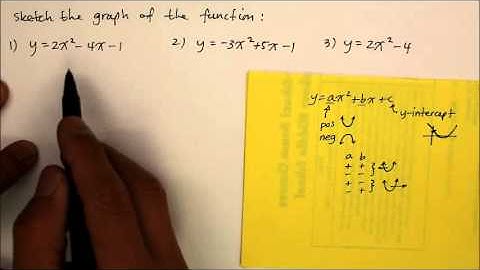 Sketch the graph of the function:
1) y = 2x² - 4x - 1 2) y = -3x² + 5x - 1 3) y = 2x² - 4
y = ax² + bx + c
y-intercept
pos
neg
a b
+ +
+ -
- -
- +